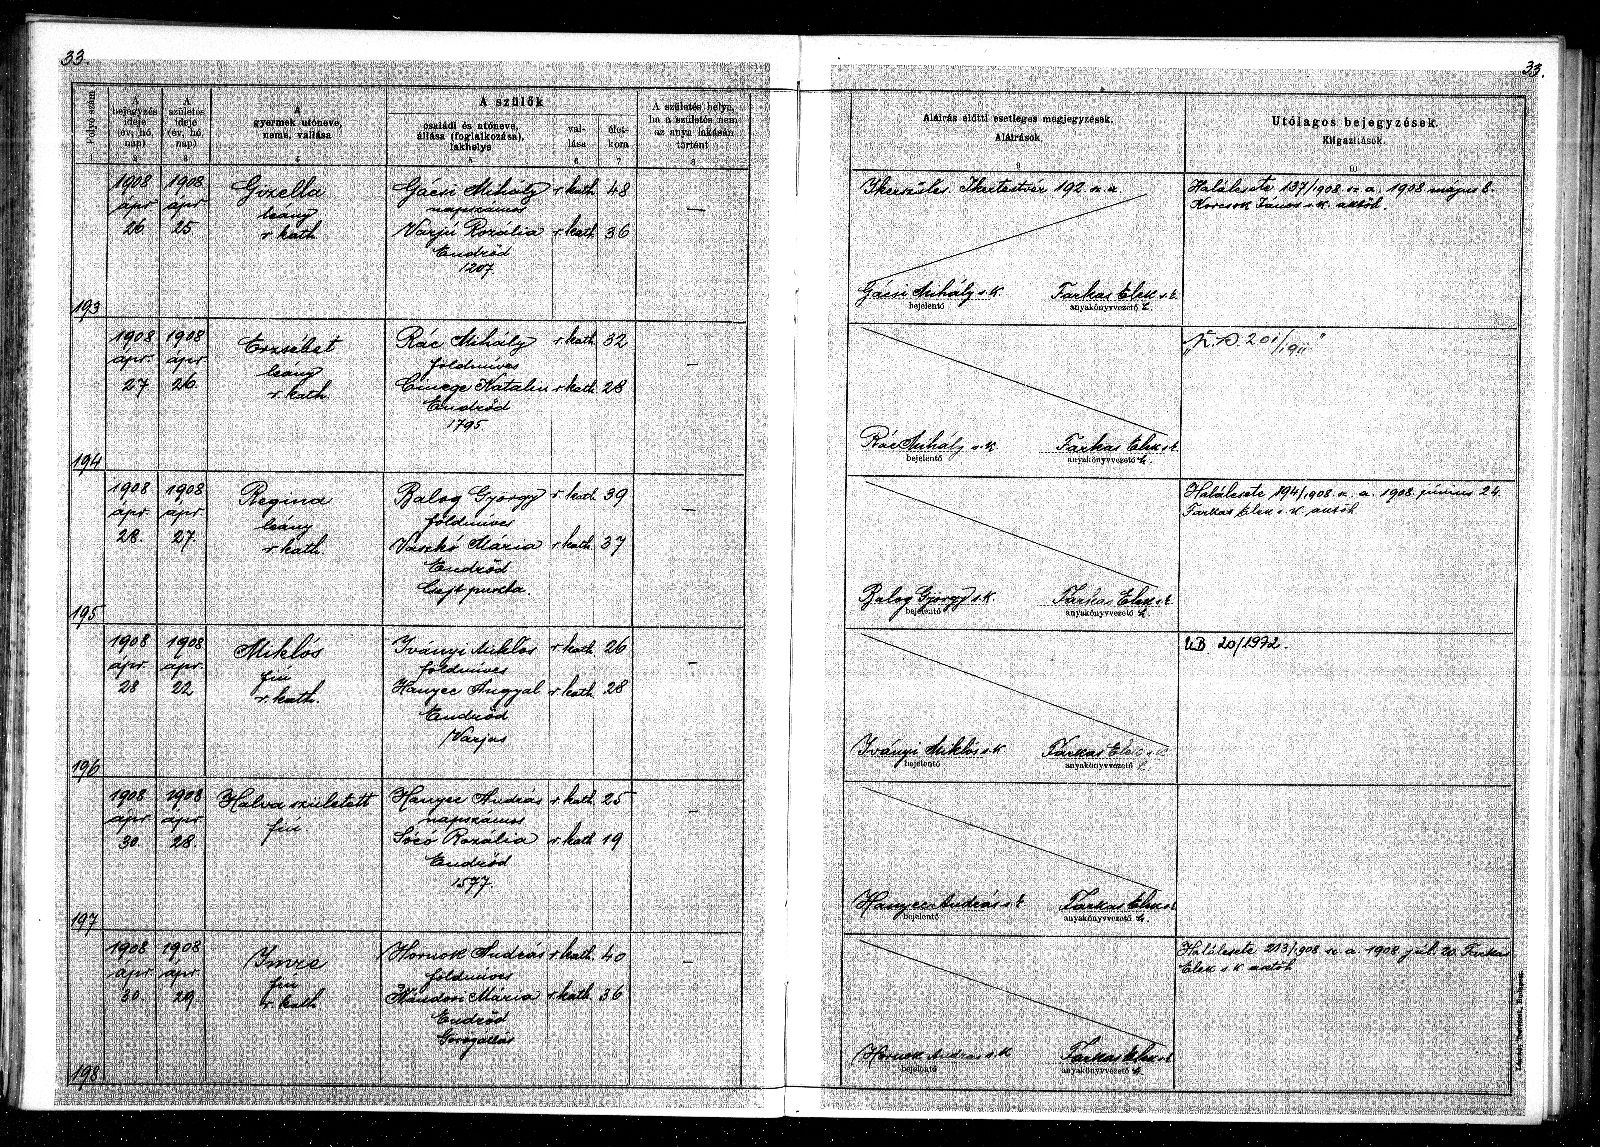 33.
Folyó szám
A bejegyzés ideje (év, hó, nap)
A születés ideje (év, hó, nap)
A gyermek utóneve, neme, vallása
A szülők
családi és utóneve, állása (foglalkozása), lakhelye
vallása
életkora
A születés helye, ha a születés nem az anya lakásán történt
193
1908 ápr 26
1908 ápr 25
Gizella
leány
r. kath.
Gácsi Mihály r. kath. 48
napszámos
Varjú Rozália r. kath. 36
Endrőd
1207.
—
194
1908 ápr. 27
1908 ápr 26
Erzsébet
leány
r. kath.
Rác Mihály r. kath. 32
földmíves
Cinege Katalin r. kath. 28
Endrőd
1795.
—
195
1908 ápr. 28.
1908 ápr. 27.
Regina
leány
r. kath.
Balog György r. kath. 39
földmíves
Vaskó Mária r. kath. 37
Endrőd
puszta.
—
196
1908 ápr. 28
1908 ápr. 22
Miklós
fiú
r. kath.
Iványi Miklós r. kath. 26
földmíves
Hanyec Angyal r. kath. 28
Endrőd
Varjas
—
197
1908 ápr 30.
1908 ápr 28.
Halva született
fiú
Hanyec András r. kath. 25
napszámos
Sócó Rozália r. kath. 19
Endrőd
1577.
—
198
1908 ápr 30.
1908 ápr 29
Imre
fiú
r. kath.
Hornok András r. kath. 40
földmíves
Mária r. kath. 36
Endrőd
—
33.
Aláírás előtti esetleges megjegyzések.
Aláírások.
9
Utólagos bejegyzések.
Kiigazítások.
10
Ikerszülés. Ikertestvér 192. sz. a.
Gácsi Mihály s. k. Farkas Elek s. k.
bejelentő anyakönyvvezető h.
Haláleste 137/1908 sz. a. 1908 május 8.
Korcsok János s. k. aktőh.
Rác Mihály s. k. Farkas Elek s. k.
bejelentő anyakönyvvezető h.
„K. D. 201/1911"
Balog György s. k. Farkas Elek s. k.
bejelentő anyakönyvvezető h.
Haláleste 194/1908. sz. a. 1908. június 24.
Farkas Elek s. k. aktőh
Iványi Miklós s. k. Farkas Elek s. k.
bejelentő anyakönyvvezető h.
UB 20/1972.
Hanyecz András s. k. Farkas Elek s. k.
bejelentő anyakönyvvezető h.
Hornok András s. k. Farkas Elek s. k.
bejelentő anyakönyvvezető h.
Haláleste 213/1908 sz. a. 1908. júl. 20. Farkas
Elek s. k. aktőh